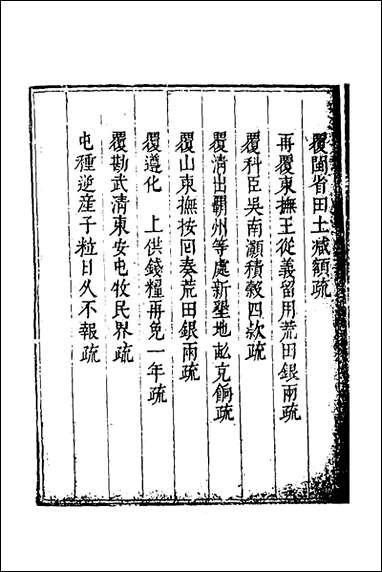 覆閩省田土减額疏
再覆東撫王從義留用荒田銀兩疏
覆科臣吳南灝積穀四款疏
覆清出霸州等處新墾地畝充餉疏
覆山東撫按囘奏荒田銀兩疏
覆遵化　上供錢糧再免一年疏
覆勘武清東安屯牧民界疏
屯種逆産子粒日久不報疏